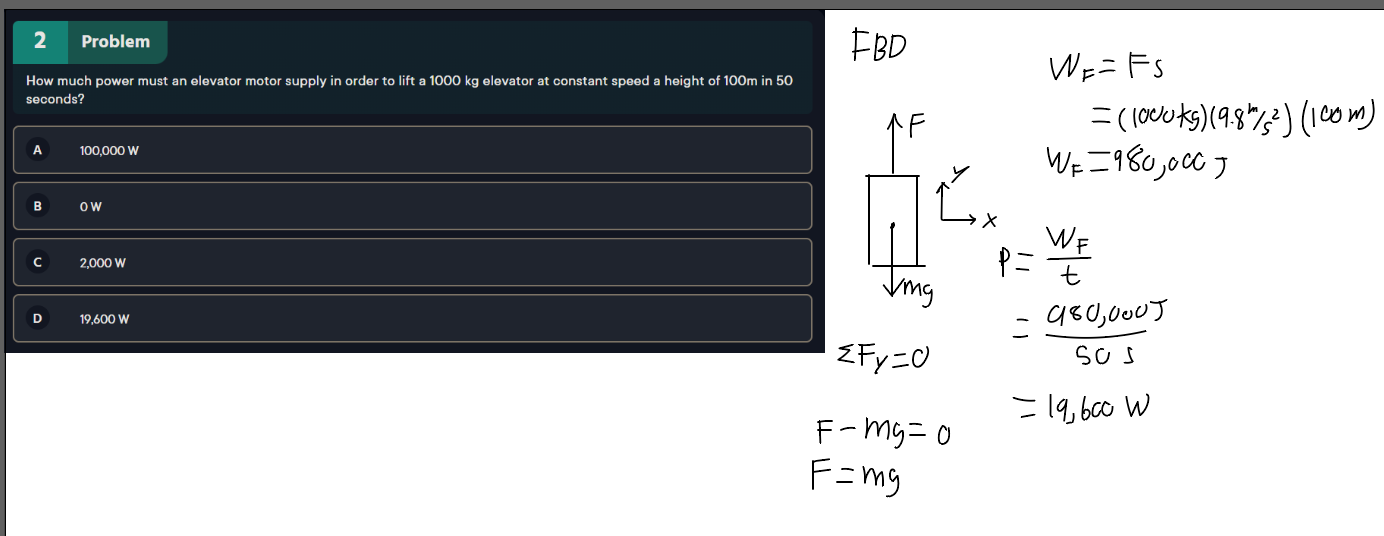 2 Problem
How much power must an elevator motor supply in order to lift a 1000 kg elevator at constant speed a height of 100m in 50
seconds?
A 100,000 W
B 0 W
C 2,000 W
D 19,600 W
FBD
F
y
x
mg
ΣFy=0
F-mg=0
F=mg
WF=Fs
=(1000kg)(9.8m/s²)(100m)
WF=980,000 J
P=WF/t
=980,000J/50 s
=19,600 W